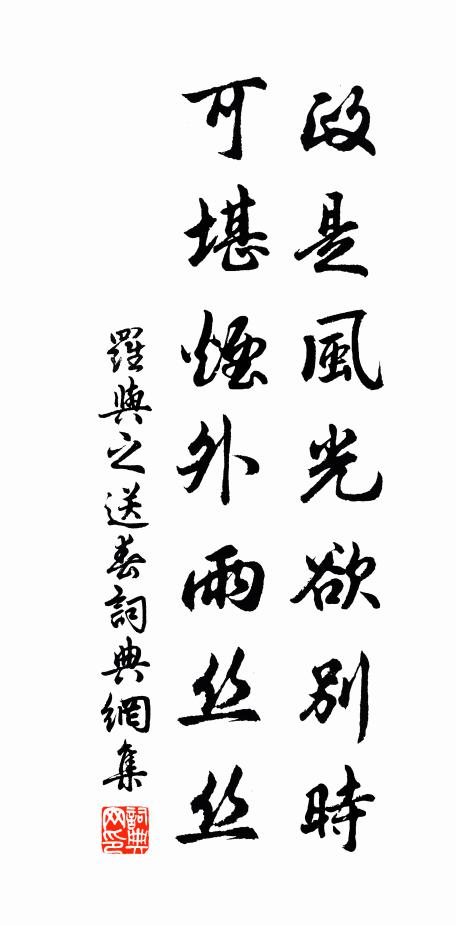 政是風光欲別時
可堪煙外雨丝丝
羅與之送春詞典網集
詞典网印